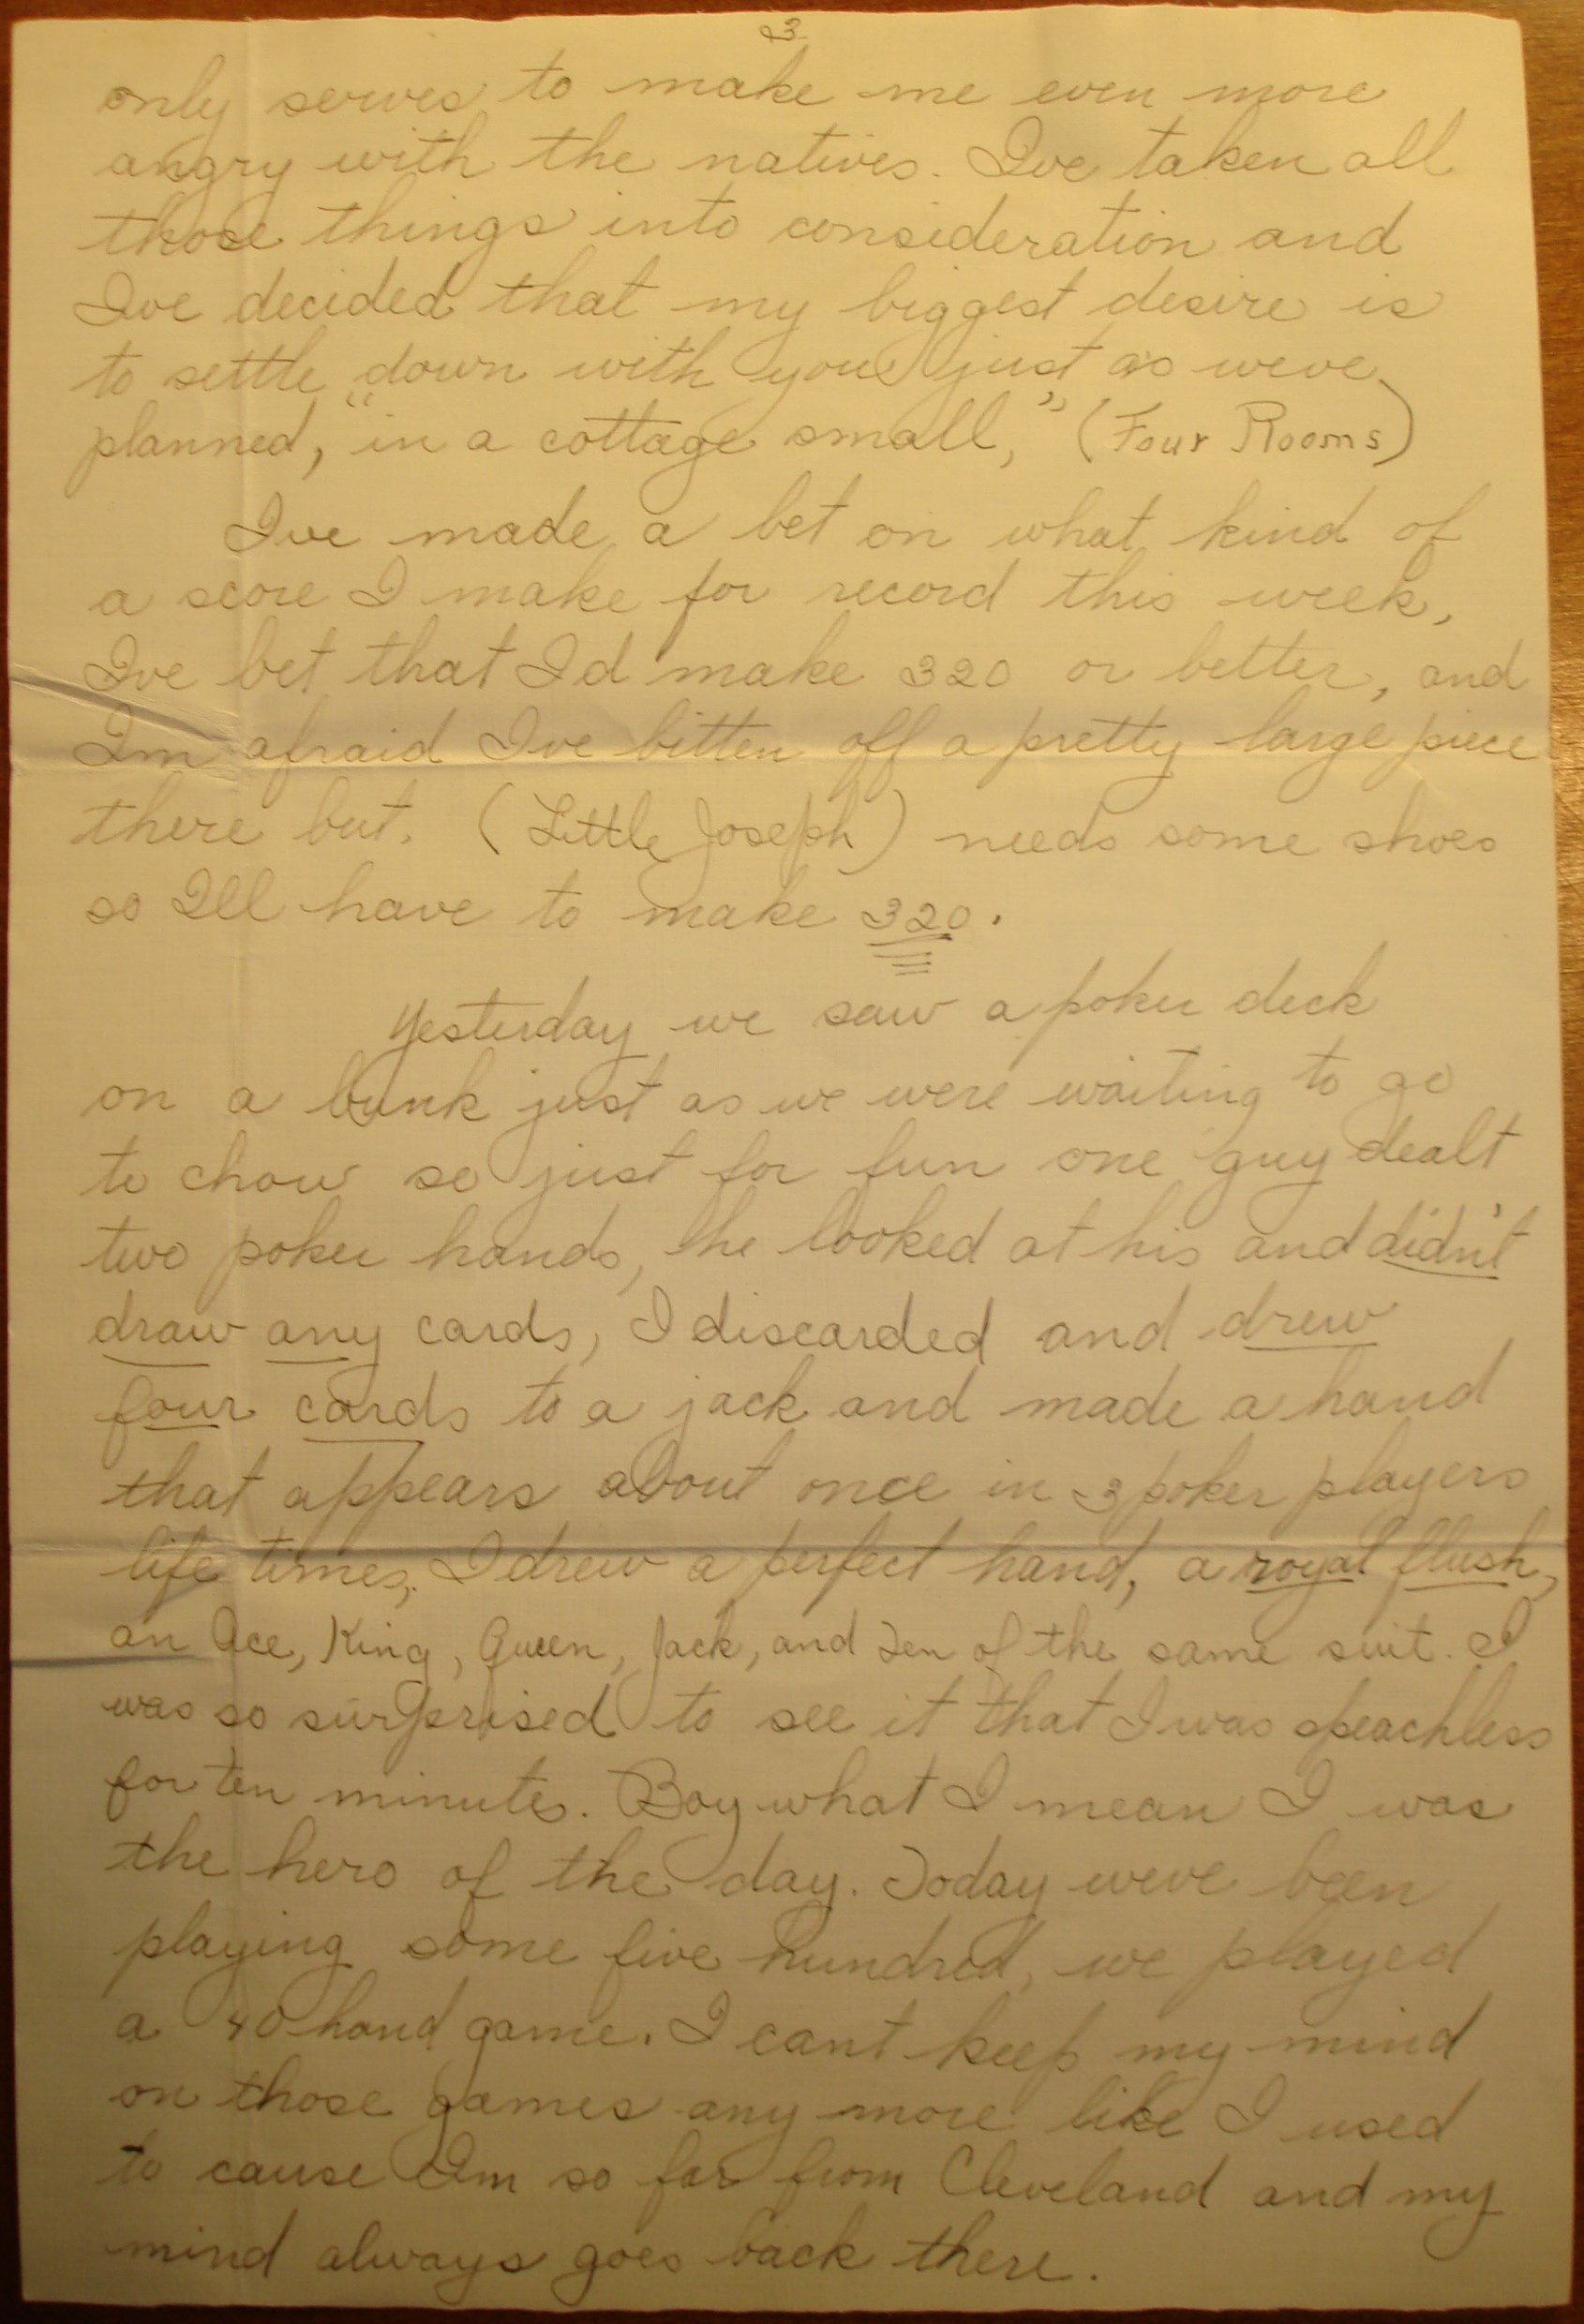 3
only serves to make me even more
angry with the natives. Ive taken all
those things into consideration and
Ive decided that my biggest desire is
to settle down with you just as weve
planned, "in a cottage small," (Four Rooms)
Ive made a bet on what kind of
a score I make for record this week,
Ive bet that Id make 320 or better, and
Im afraid Ive bitten off a pretty large piece
there but. (Little Joseph) needs some shoes
so Ill have to make 320.
Yesterday we saw a poker deck
on a bunk just as we were waiting to go
to chow so just for fun one guy dealt
two poker hands, he looked at his and didn't
draw any cards, I discarded and drew
four cards to a jack and made a hand
that appears about once in 3 poker players
life times, I drew a perfect hand, a royal flush,
an Ace, King, Queen, Jack, and Ten of the same suit. I
was so surprised to see it that I was speachless
for ten minutes. Boy what I mean I was
the hero of the day. Today weve been
playing some five hundred, we played
a 40 hand game. I cant keep my mind
on those games any more like I used
to cause Im so far from Cleveland and my
mind always goes back there.